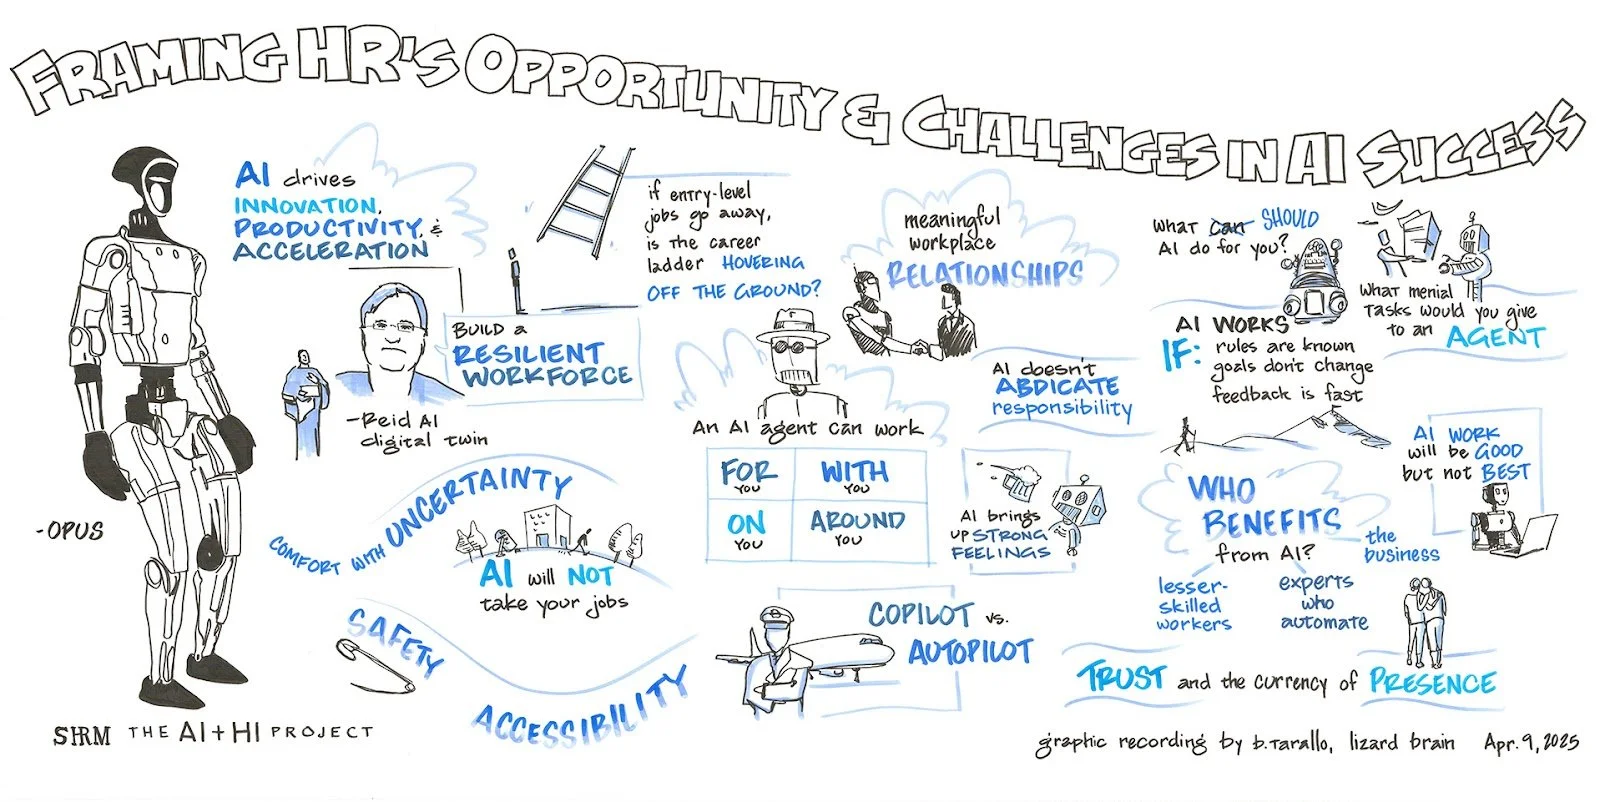 FRAMING HR'S OPPORTUNITY & CHALLENGES IN AI SUCCESS
-OPUS
AI drives
INNOVATION,
PRODUCTIVITY, &
ACCELERATION
BUILD a
RESILIENT
WORKFORCE
-Reid AI
digital twin
if entry-level
jobs go away,
is the career
ladder HOVERING
OFF THE GROUND?
meaningful
workplace
RELATIONSHIPS
What can SHOULD
AI do for you?
What menial
Tasks would you give
to an AGENT
AI WORKS
IF: rules are known
goals don't change
feedback is fast
AI doesn't
ABDICATE
responsibility
An AI agent can work
FOR YOU
WITH YOU
ON YOU
AROUND YOU
AI brings
UP STRONG
FEELINGS
AI WORK
will be GOOD
but not BEST
WHO
BENEFITS
from AI?
the
business
lesser-
skilled
workers
experts
who
automate
COMFORT WITH UNCERTAINTY
AI will NOT
take your jobs
SAFETY
ACCESSIBILITY
COPILOT vs.
AUTOPILOT
TRUST and the currency of PRESENCE
SHRM THE AI+HI PROJECT
graphic recording by b.Tarallo, lizard brain Apr. 9, 2025